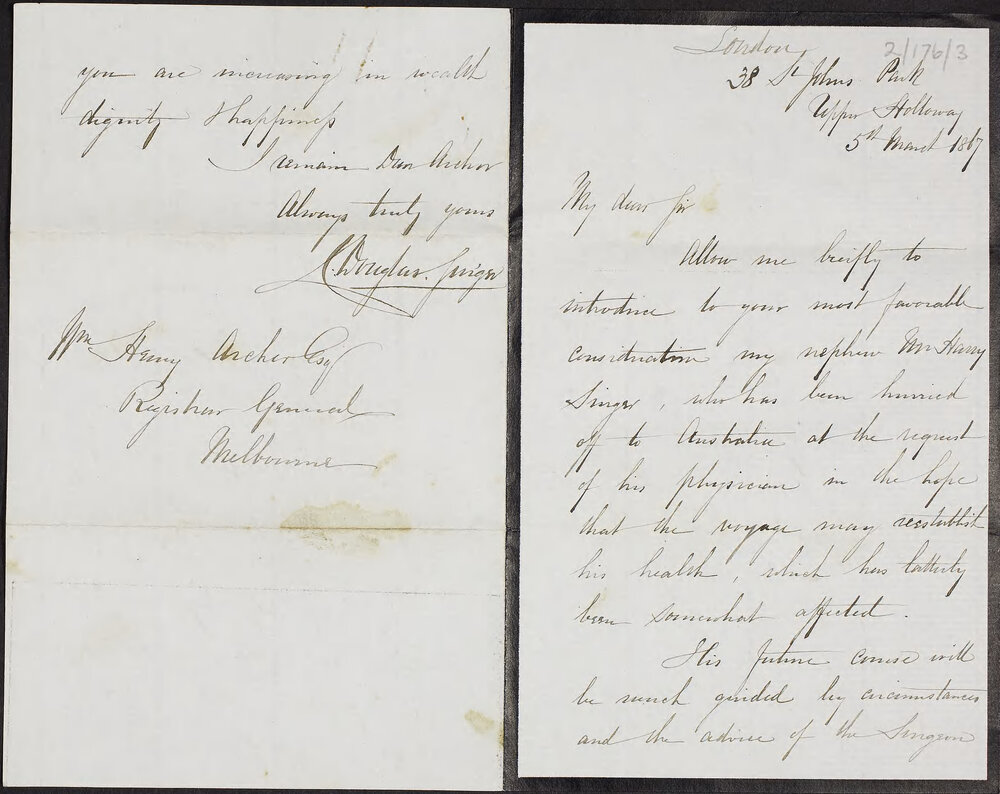 London
2/176/3
38 St Johns Park
Upper Holloway
5th March 1867
My dear Sir
Allow me briefly to
introduce to your most favorable
consideration my nephew Mr Harry
Singer, who has been hurried
off to Australia at the request
of his physician in the hope
that the voyage may reestablish
his health, which has latterly
been somewhat affected.
His future course will
be much guided by circumstances
and the advice of the Surgeon
you are increasing in wealth
dignity & happiness
I remain Dear Archer
Always truly yours
Douglas. Singer
Wm Henry Archer Esq
Registrar General
Melbourne